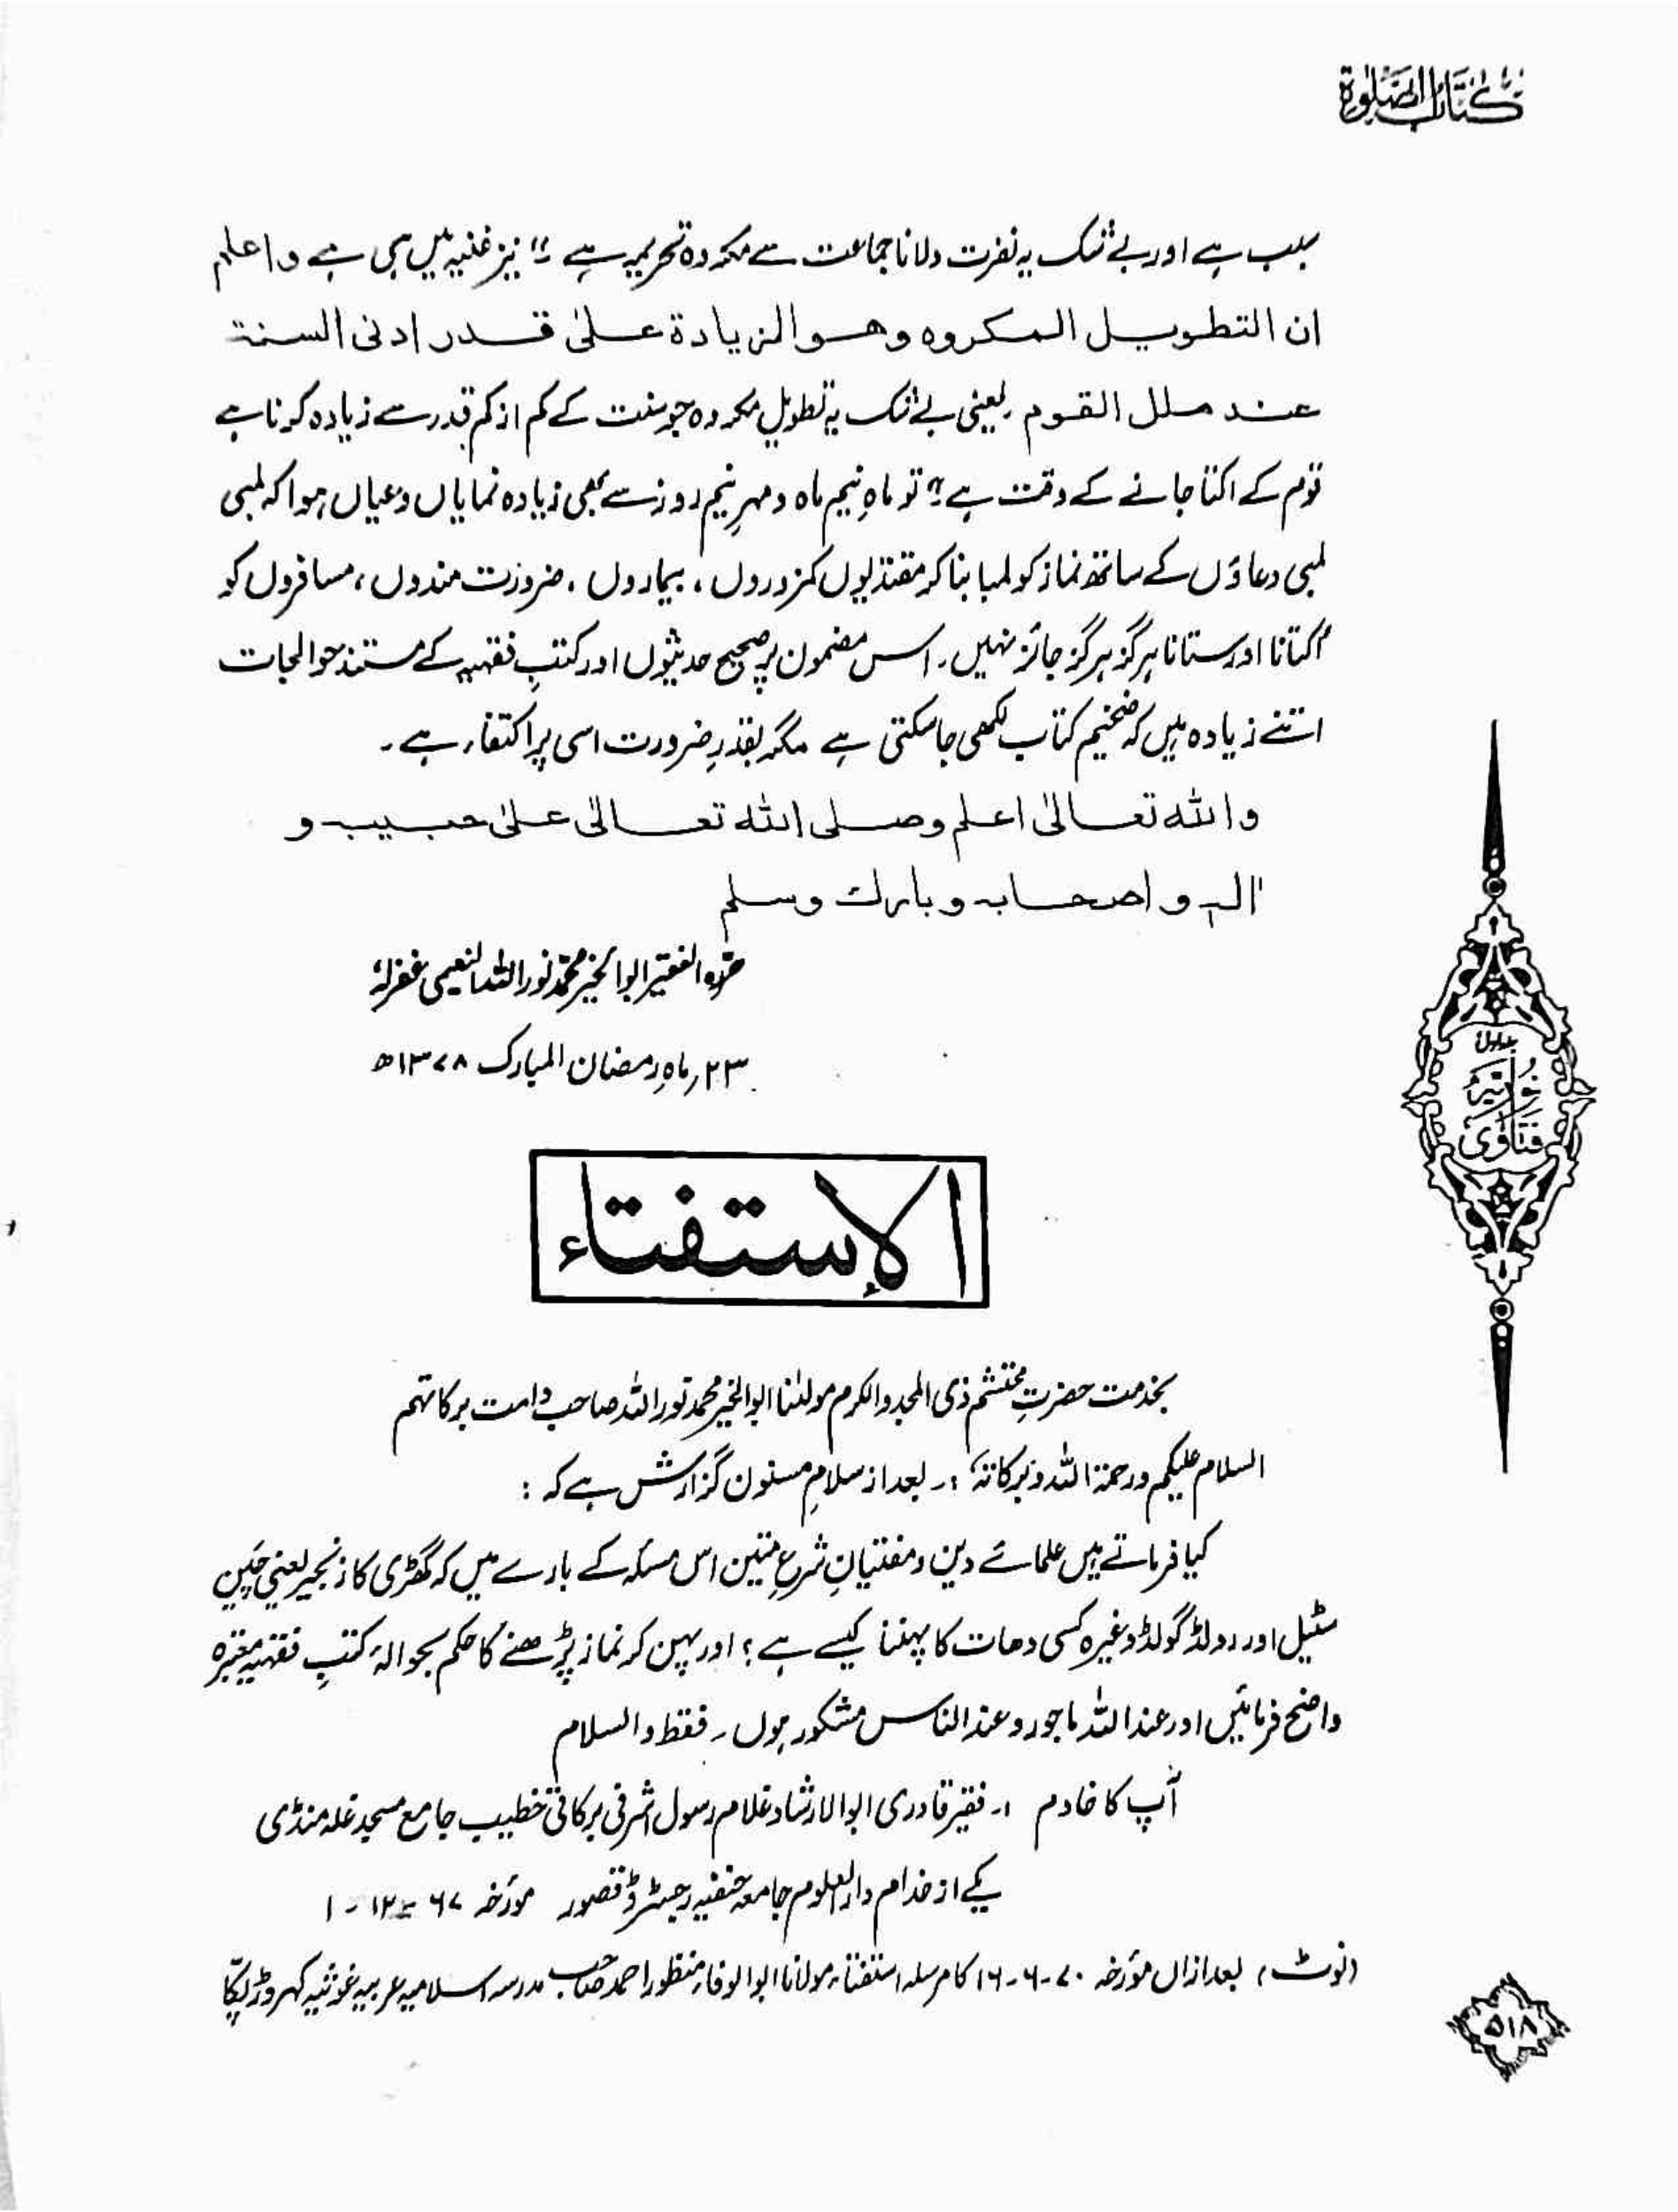 كتاب الصلوة
سبب ہے اور بے شک یہ نفرت دلانا جماعت سے مکروہ تحریمہ ہے ‘‘ نیز غنیہ میں ہی ہے واعلم
ان التطويل المكروه وهو الزيادة على قدر ادنى السنة
عند ملل القوم۔ یعنی بے شک یہ تطویل مکروہ جو سنت کے کم از کم قدر سے زیادہ کرنا ہے
قوم کے اکتا جانے کے وقت ہے‘‘ تو ماہِ نیم ماہ و مہرِ نیم روز سے بھی زیادہ نمایاں و عیاں ہوا کہ لمبی
لمبی دعاؤں کے ساتھ نماز کو لمبا بنا کر مقتدیوں کمزوروں ، بیماروں ، ضرورت مندوں ، مسافروں کو
اکتانا اور ستانا ہرگز ہرگز جائز نہیں۔ اس مضمون پر صحیح حدیثوں اور کتبِ فقہیہ کے مستند حوالجات
اتنے زیادہ ہیں کہ ضخیم کتاب لکھی جا سکتی ہے مگر بقدرِ ضرورت اسی پر اکتفاء ہے۔
والله تعالىٰ اعلم وصلى الله تعالىٰ علىٰ حبيبه و
اٰله و اصحابه وبارك وسلم
حررہ الفقیر ابوالخیر محمد نور اللہ النعیمی غفرلہٗ
۲۳؍ ماہِ رمضان المبارک ۱۳۷۸ھ
الإستفتاء
بخدمت حضرتِ محتشم ذی المجد والکرم مولٰنا ابوالخیر محمد نور اللہ صاحب دامت برکاتہم
السلام علیکم ورحمۃ اللہ وبرکاتہٗ :۔ بعد از سلامِ مسنون گزارش ہے کہ :
کیا فرماتے ہیں علمائے دین و مفتیانِ شرعِ متین اس مسئلہ کے بارے میں کہ گھڑی کا زنجیر یعنی چَین
سٹیل اور رولڈ گولڈ وغیرہ کسی دھات کا پہننا کیسے ہے ؟ اور پہن کر نماز پڑھنے کا حکم بحوالۂ کتبِ فقہیہ معتبرہ
واضح فرمائیں اور عند اللہ ماجور و عند الناس مشکور ہوں ۔ فقط والسلام
آپ کا خادم :۔ فقیر قادری ابوالارشاد غلام رسول اشرفی برکاتی خطیب جامع مسجد غلہ منڈی
یکے از خدام دارالعلوم جامعہ حنفیہ رجسٹرڈ قصور مورخہ ۶۷ - ۱۲ - ۱
(نوٹ) بعد ازاں مؤرخہ ۷۰-۶-۱۶ کا مرسلہ استفتاء مولانا ابوالوفاء منظور احمد صاحب مدرسہ اسلامیہ عربیہ غوثیہ کہروڑ پکا
جلد اول
فتاوىٰ نوريه
۵۱۸